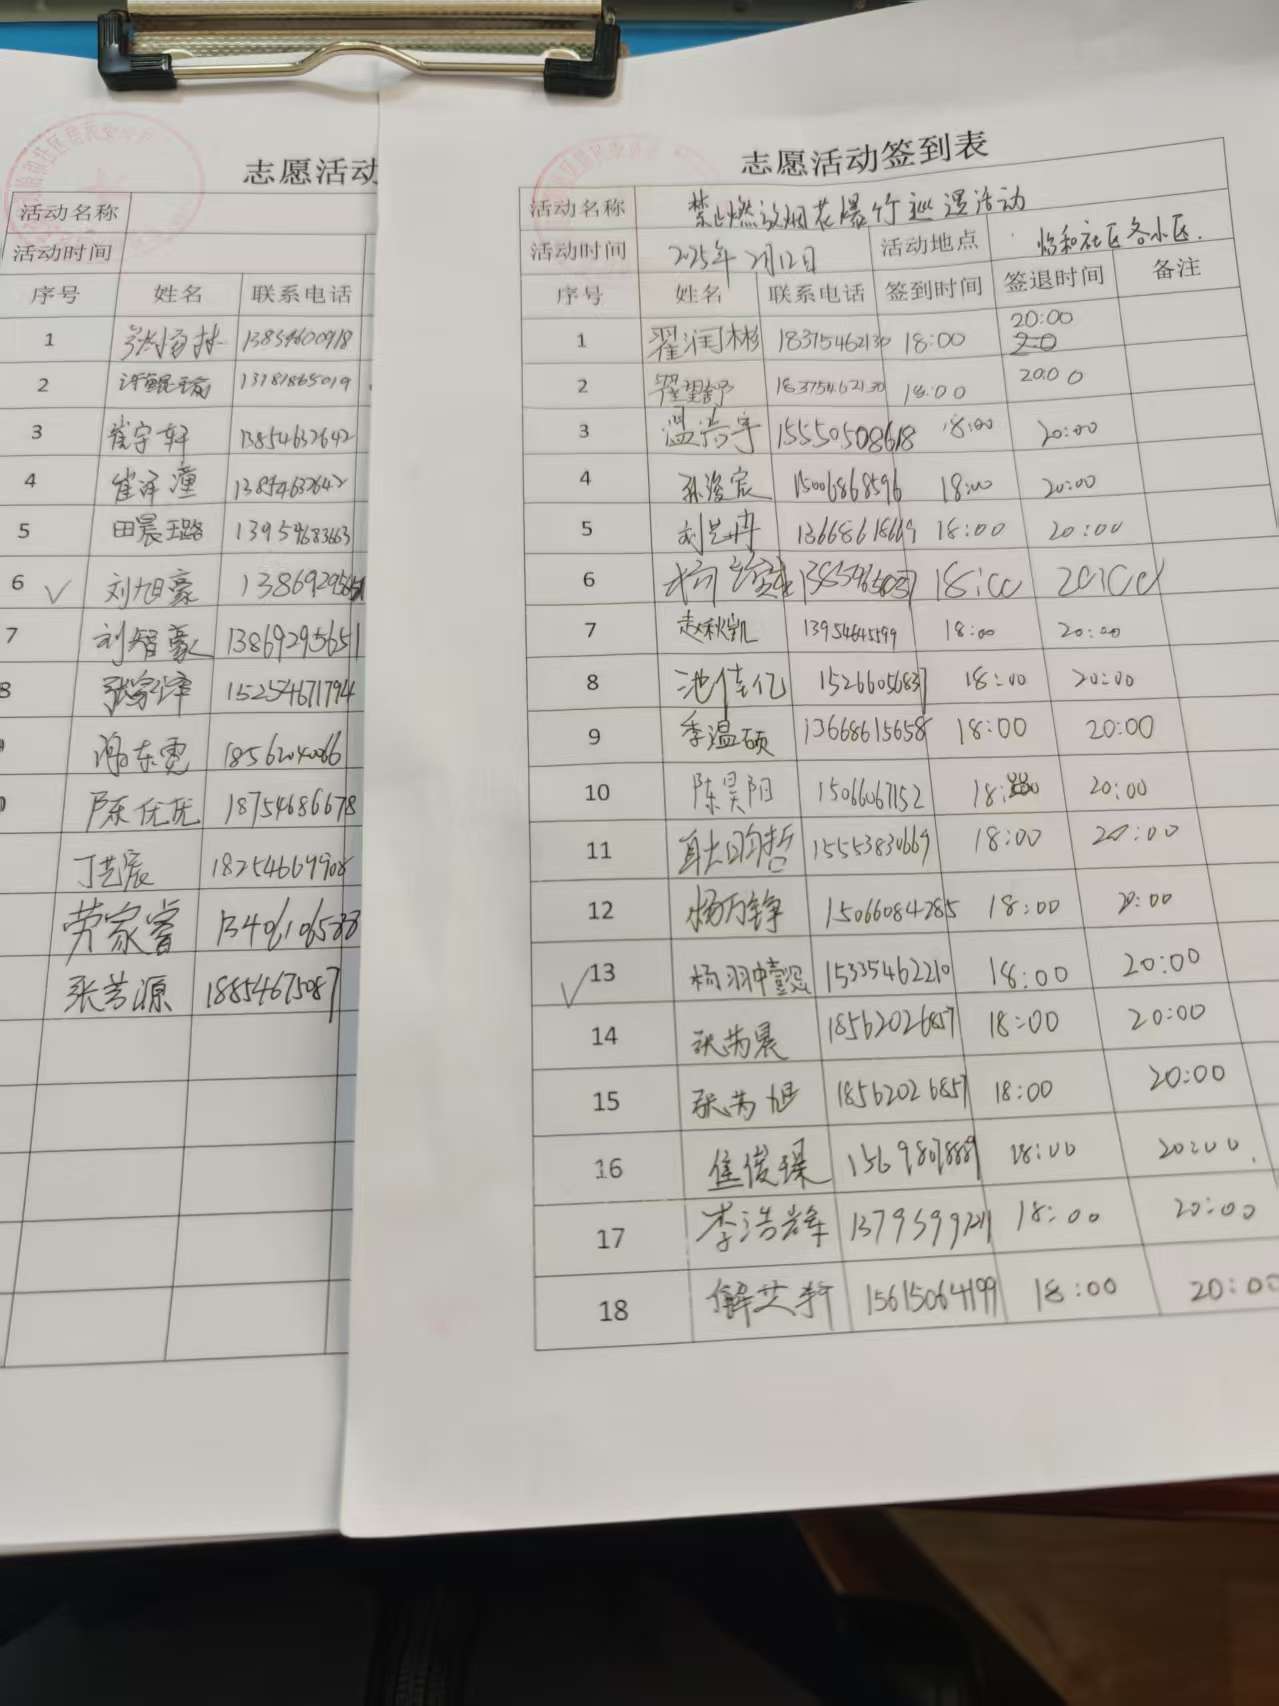 志愿活动
活动名称
活动时间
序号 姓名 联系电话
1 13854600918
2 13181865019
3 崔宇轩 13854632642
4 崔泽潼 13854632642
5 田晨璐 13954683663
6 刘旭豪
7 刘智豪 13869295651
8 张家泽 15254671794
陈优优 18754686678
丁艺宸 18254669908
劳家睿 13406106588
张芳源 18854675087
志愿活动签到表
活动名称 禁止燃放烟花爆竹巡逻活动
活动时间 2025年2月12日 活动地点 怡和社区各小区.
序号 姓名 联系电话 签到时间 签退时间 备注
1 翟润彬 18375462130 18:00 20:00
2 18375462130 18:00 20:00
3 温浩宇 15550508618 18:00 20:00
4 孙浚宸 15006868596 18:00 20:00
5 13668618669 18:00 20:00
6 18:00 20:00
7 赵秋凯 13954645599 18:00 20:00
8 池佳亿 15266056837 18:00 20:00
9 季温硕 13668615658 18:00 20:00
10 陈昊阳 15066067152 18:00 20:00
11 15553830669 18:00 20:00
12 杨万铮 15066084285 18:00 20:00
13 15335462210 18:00 20:00
14 张芮晨 18562026857 18:00 20:00
15 张芮旭 18562026857 18:00 20:00
16 18:00 20:00.
17 李浩峰 18:00 20:00
18 解艾轩 15615064199 18:00 20:00